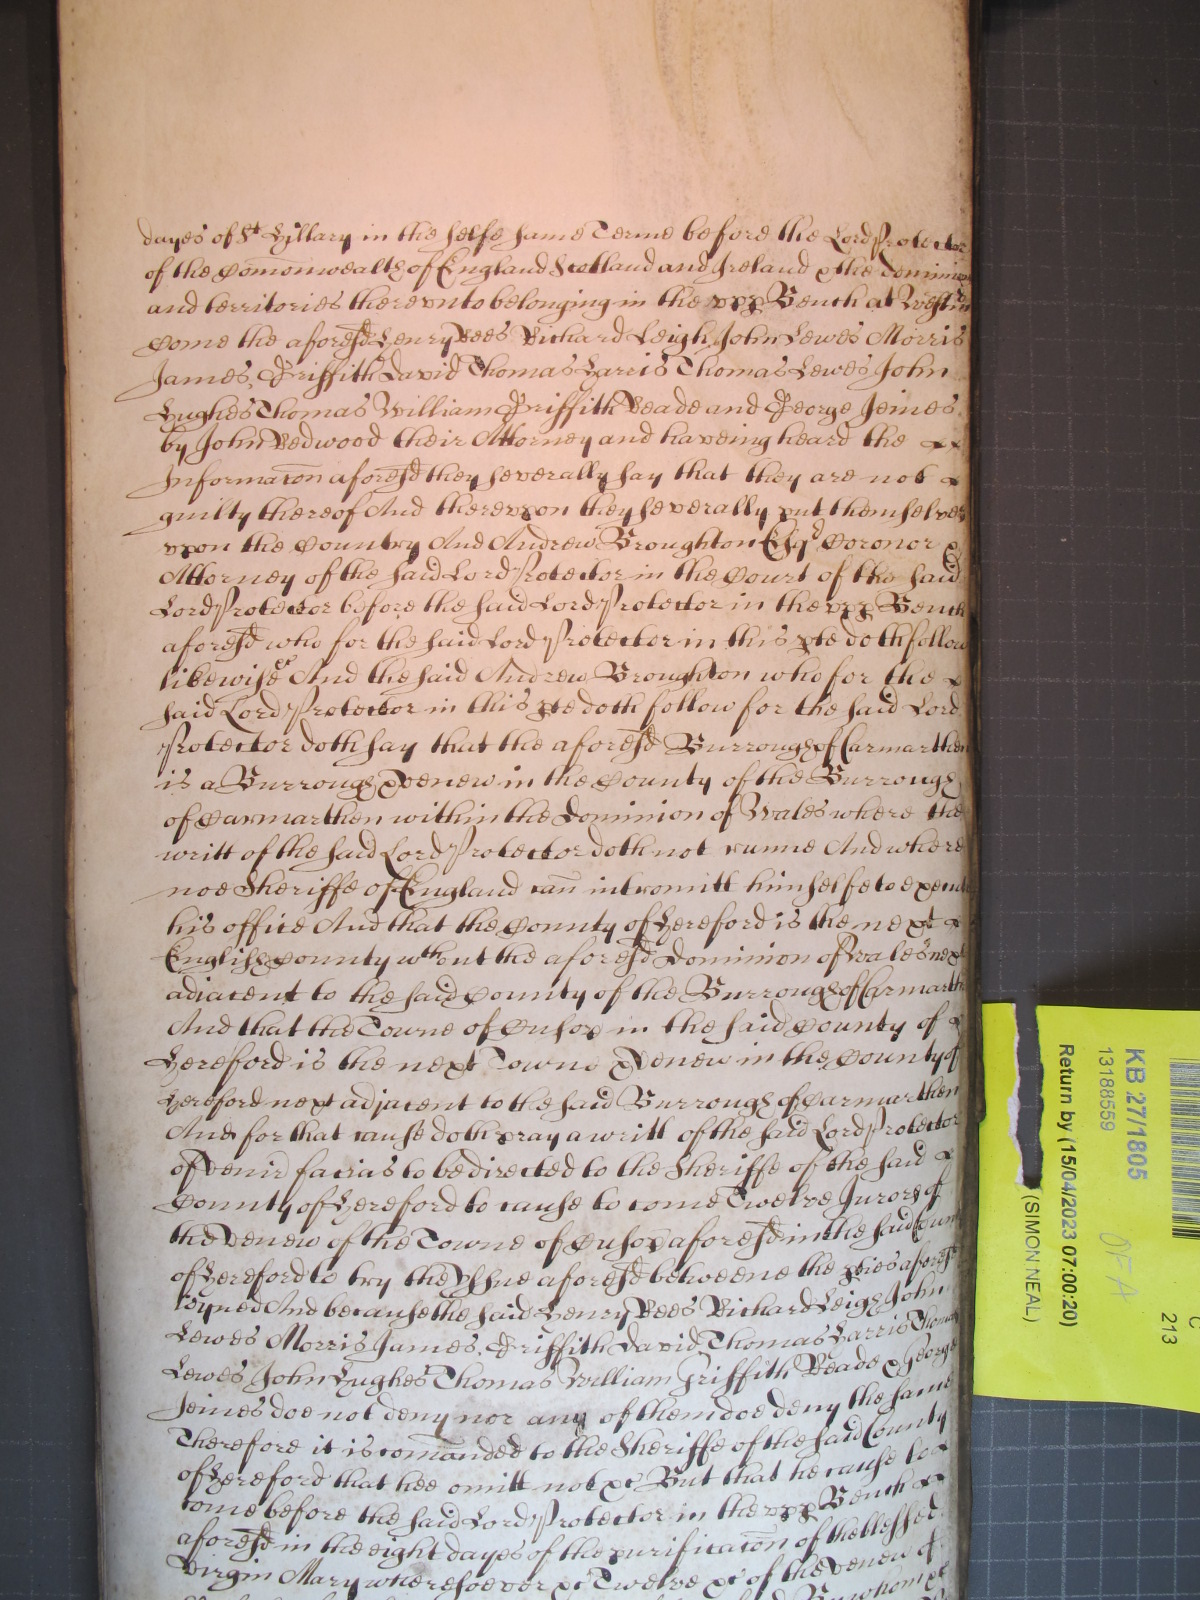 dayes of St Hillary in the selfe same Terme before the Lord Protector
of the Comonwealth of England Scotland and Ireland & the dominions
and territories therevnto belonging in the vpp Bench at Westm
Come the aforesd Henry Rees Richard Leigh John Lewes Morris
James, Griffith David Thomas Harris Thomas Lewes John
Hughes Thomas William Griffith Reade and George Jeines
by John Redwood their Attorney and haveing heard the
Informacon aforesd they severally say that they are not
guilty thereof And therevpon they severally put themselves
vpon the Country And Andrew Broughton Esqr Coronor &
Attorney of the said Lord Protector in the Court of the said
Lord Protector before the said Lord Protector in the vpp Bench
aforesd who for the said Lord Protector in this pte doth follow
likewise &c And the said Andrew Broughton who for the
said Lord Protector in this pte doth follow for the said Lord
Protector doth say that the aforesd Burrough of Carmarthen
is a Burrough & venew in the County of the Burrough
of Carmarthen within the Dominion of Wales where the
writt of the said Lord Protector doth not runne And where
noe Sheriffe of England can intromitt himselfe to execute
his office And that the County of Hereford is the next
English County wthout the aforesd Dominion of Wales next
adiacent to the said County of the Burrough of Carmarthen
And that the Towne of in the said County of
Hereford is the next Towne & venew in the County of
Hereford next adjacent to the said Burrough of Carmarthen
And for that cause doth pray a writt of the said Lord Protector
of venir facias to be directed to the Sheriffe of the said
County of Hereford to cause to come Twelve Jurors of
the venew of the Towne of aforesd in the said County
of Hereford to try the yssue aforesd betweene the pties aforesd
Ioyned And because the said Henry Rees Richard Leigh John
Lewes Morris James, Griffith David Thomas Harris Thomas
Lewes John Hughes Thomas William Griffith Reade & George
Jeines doe not deny nor any of them doe deny the same
Therefore it is comanded to the Sheriffe of the said County
of Hereford that hee omitt not &c But that he cause to
come before the said Lord Protector in the vpp Bench
aforesd in the eight dayes of the purificacon of the blessed
Virgin Mary wheresoever &c Twelve &c of the venew of
By whom &c
KB 27/1805
13188559
Return by (15/04/2023 07:00:20)
(SIMON NEAL)
OFA
C
213